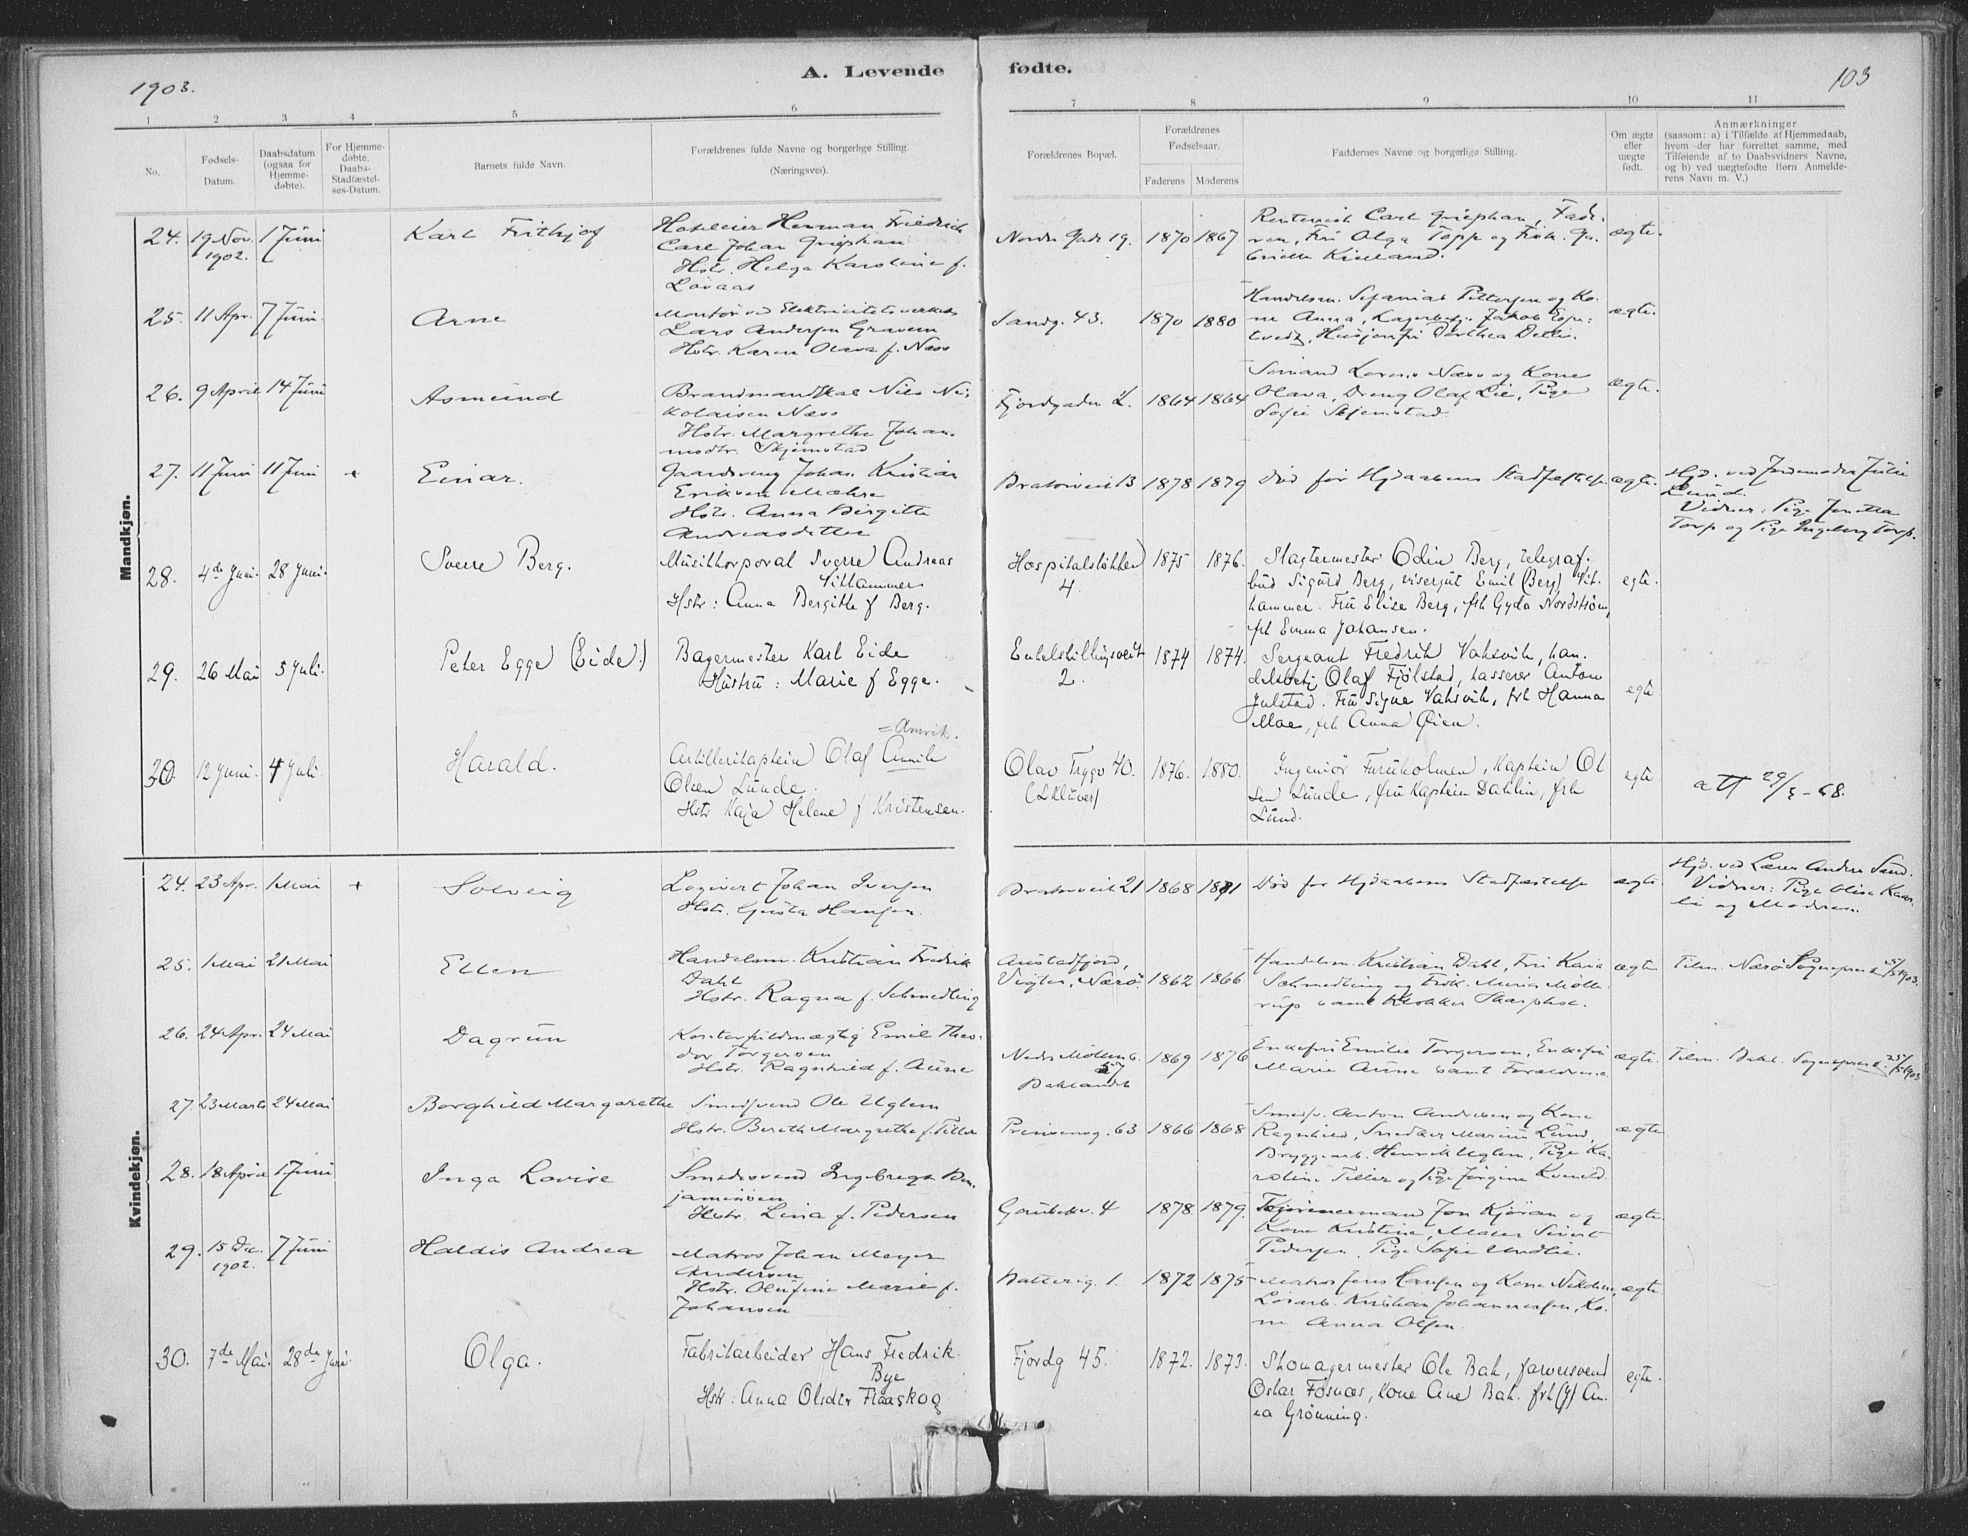 1903.
A. Levende fødte.
103
1 2 3 4 5 6 7 8 9 10 11
No.
Fødsels-Datum.
Daabsdatum (ogsaa for Hjemme-døbte).
For Hjemme-døbte. Daabs-Stadfæstel-ses-Datum.
Barnets fulde Navn.
Forældrenes fulde Navne og borgerlige Stilling. (Næringsvei).
Forældrenes Bopæl.
Forældrenes Fødselsaar.
Faderens Moderens
Faddernes Navne og borgerlige Stilling.
Om ægte eller uægte født.
Anmærkninger
(saasom: a) i Tilfælde af Hjemmedaab,
hvem der har forrettet samme, med
Tilføiende af to Daabsvidners Navne,
og b) ved uægtefødte Børn Anmelde-
rens Navn m. V.)
Mandkjøn.
24. 19 Nov. 1902. 1 Juni Karl Frithjof
Herman Friedrich
Carl Johan Griephan
Hstr. Helga Karoline f.
Løvaas
Nordre Gade 19. 1870 1867
Carl Griephan, Fade-
ren, Fru Olga Topp og Frøk. Ga-
brielle Kielland.
ægte.
25. 11 Apr. 7 Juni. Arne
Montør ved Elektricitetsverket
Lars Andersen Gravem
Hstr. Karen Olava f. Næss
Sandg. 43. 1870 1880
Handelsm. Sefanias Pettersen og Ko-
ne Anna, Lagerbetj. Jakob
ægte.
26. 9 April 14 Juni Asmund
Brandmandskab Nils Ni-
kolaisen Næss
Hstr. Margrethe Johan-
nesdtr. Skjemstad
Fjordgaden 1864 1864
Næss og Kone
Olava, Dreng Olaf Lie, Pige
Sofie Skjemstad
ægte.
27. 11 Juni 11 Juni + Einar.
Gaardsdreng Johan Kristian
Eriksen Mæhre
Hstr. Anna Birgitte
Andreasdatter
Bratørveit 13 1878 1879
Død før Hjdaabens Stadfæstelse
ægte.
Hjd. ved Jordemoder Julie
Lund.
Vidner: Pige Jonetta
Torp og Pige Ingeborg Torp.
28. 4de Juni. 28 Juni. Sverre Berg.
Musikkorporal Sverre Andreas
Sithammer
Hstr: Anna Bergitte f Berg.
Hospitalsløkken 4. 1875 1876.
Slagtermester Odin Berg, telegraf-
bud Sigurd Berg, visergut Emil (Berg) Sit-
hammer. Fru Elise Berg, frk Gyda Nordstrøm,
frk Emma Johansen.
egte.
29. 26 Mai 5 Juli. Peter Egge (Eide.)
Bagermester Karl Eide
Hustru: Marie f Egge.
Enkelskillingsveit 2. 1874 1874.
Sergeant Fredrik Vaksvik, han-
delsbetj Olaf Fjølstad, kasserer Anton
Julstad. Fru Signe Vaksvik, frk Hanna
Moe, frk Anna Øien.
egte
30. 12 Juni. 4 Juli. Harald.
= Amrik.
Artillerikaptein Olaf Amrik
Olsen Lunde.
Hstr Kaja Helene f Kristensen.
Olav Trygv 40. 1876. 1880.
Ingeniør Furuholmen, Kaptein Ol
sen Lunde, fru Kaptein Dahlin, frk
Lund.
egte
att 29/5-68.
Kvindekjøn.
24. 23 Apr. 1 Mai + Solveig
Logivert Johan Iversen
Hstr. Gusta Hansen.
Bratørveit 21 1868 1871
Død før Hjdaabens Stadfæstelse
ægte.
Hjd. ved Lærer Anders Sand.
Vidner: Pige Olise
og Moderen.
25. 1 Mai 21 Mai Ellen
Handelsm. Kristian Fredrik
Dahl
Hstr. Ragna f. Schmedling
Austadfjord,
Vigten, Nærø. 1862 1866
Handelsm. Kristian Dahl, Fru Kaia
Schmedling og Frøk. Maria Molle-
rup samt Klokker
ægte
Tilm. Nærø Sognepræst 25/5 1903.
26. 24 Apr. 24 Mai Dagrun
Kontorfuldmægtig Emil Theo-
dor Torgersen
Hstr. Ragnhild f. Aune
Nedre Møllenb.
Baklandet 1869 1876
Enkefru Emilie Torgersen, Enkefru
Marie Aune samt Forældrene
ægte.
Tilm. Bakl. Sognepræst 25/5 1903
27. 23 Marts 24 Mai Borghild Margarethe
Smedsvend Ole Uglem
Hstr. Berethe Margrethe f. Tiller
Prinsensg. 63 1866 1868
Smedsv. Anton Andersen og Kone
Ragnhild, Smedker Marius Lund,
Bryggearb. Henrik Uglem, Pige Ka-
roline Tiller og Pige Jørgine Kveneld
ægte
28. 18 April 1 Juni Inga Lovise
Smedsvend Ingebregt Ben-
jaminsen
Hstr. Lina f. Pedersen
Gaubekv. 4 1878. 1879.
Jon Kjøran og
Kone Kristine, Maler Sivert
Pedersen, Pige Sofie Undlie.
ægte.
29. 15 Dec. 1902. 7 Juni Haldis Andrea
Matros Johan Meyer
Andersen
Hstr. Olufine Marie f.
Johansen
Batterig. 1. 1872 1875
Matros Jens Hansen og Kone Nikoline,
Løsarb. Kristian Johannessen, Ko-
ne Anna Olsen.
ægte
30. 7de Mai. 28de Juni. Olga.
Fabrikarbeider Hans Fredrik
Bye
Hstr: Anna Olsdtr Flaaskog
Fjordg 45. 1872. 1873.
Skomagermester Ole Bak, farversvend
Oskar Fosnæs, kone Ane Bak. frk (?) An-
na Grønning.
egte.